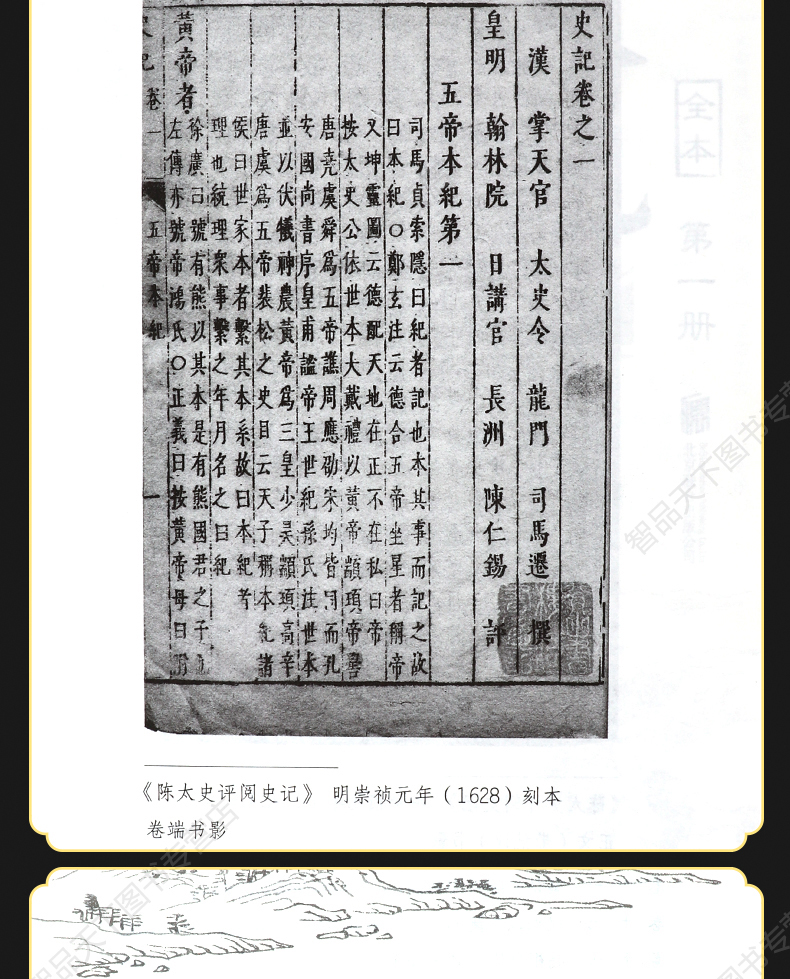 史記卷之一
漢 掌天官 太史令 龍門 司馬遷 撰
皇明 翰林院 日講官 長洲 陳仁錫 評
五帝本紀第一
司馬貞索隱曰紀者記也本其事而記之故
曰本紀○鄭玄注云德合五帝坐星者稱帝
又坤靈圖云德配天地在正不在私曰帝
按太史公依世本大戴禮以黃帝顓頊帝嚳
唐堯虞舜爲五帝譙周應劭宋均皆同而孔
安國尚書序皇甫謐帝王世紀孫氏注世本
並以伏犧神農黃帝爲三皇少昊顓頊高辛
唐虞爲五帝裴松之史目云天子稱本紀諸
侯曰世家本者繫其本系故曰本紀者
理也統理衆事繫之年月名之曰紀
黃帝者
徐廣曰號有熊以其本是有熊國君之子
左傳亦號帝鴻氏○正義曰按黃帝母曰
卷一
五帝本紀
一
《陈太史评阅史记》 明崇祯元年（1628）刻本
卷端书影
全本
第一册
智品天下图书专营店